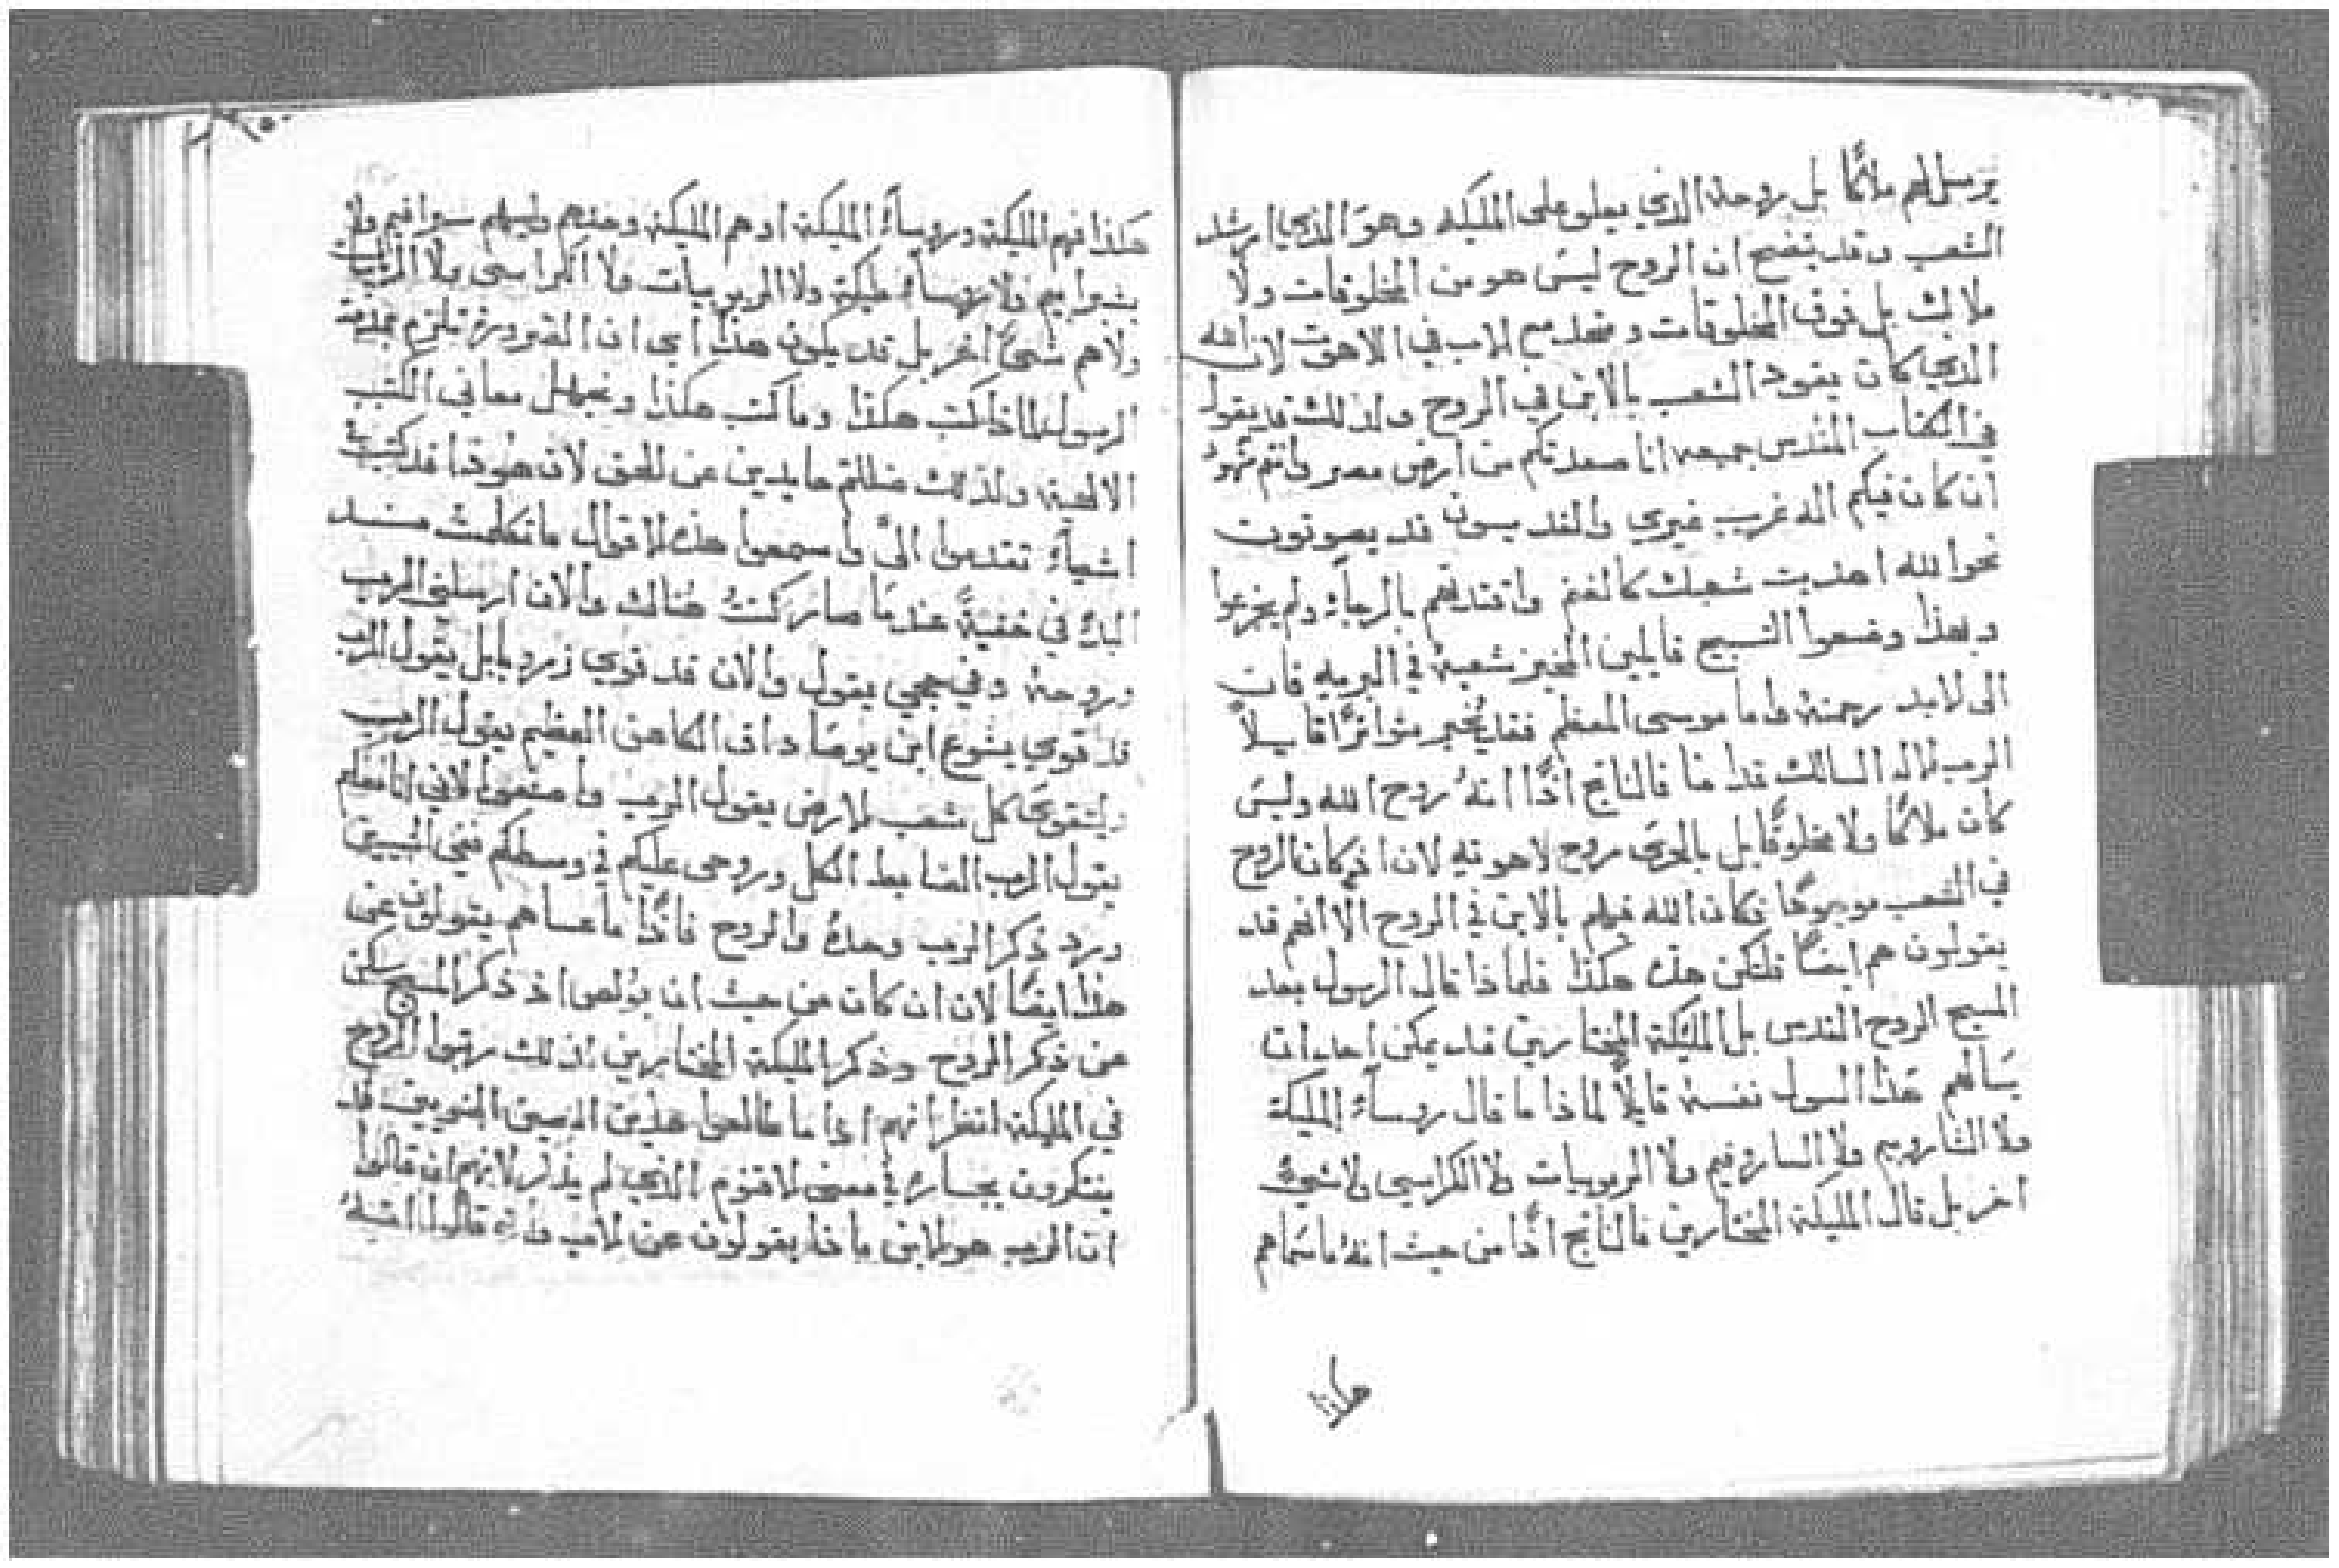 يرسل لهم ملاكًا بل روحه الذي يعلو على المليكه وهو الذي ارشد
الشعب وقد يتضح ان الروح ليس هو من المخلوقات ولا
ملاك بل فوق المخلوقات ومتحد مع الاب في اللاهوت لان الله
الذي كان يقود الشعب بالابن في الروح ولذلك قد يقول
في الكتاب المقدس جميعه انا صعدتكم من ارض مصر وانتم شهود
ان كان فيكم اله غريب غيري والقديسون قد يصوتون
نحو الله اهديت شعبك كالغنم واقتدتهم بالرجاء ولم يجزعوا
وبهذا وضعوا التسبيح قايلين المخبز شعبه في البريه فان
الى لابد رحمته واما موسى المعظم فقد يخبر متواترًا قايلاً
الرب الاله السالك قدامنا فالناتج اذًا انهُ روح الله وليس
كان ملاكًا ولا مخلوقًا بل بالحري روح لاهوتيه لان اذ كان الروح
في الشعب موجودًا فكان الله فيهم بالابن في الروح الا انهم قد
يقولون هم ايضًا فلتكن هذه هكذا فلماذا قال الرسول بعد
المسيح الروح القدس بل المليكة المختارين قد يمكن احد ان
يسالهم هذا السول نفسه قايلاً لماذا ما قال روساء المليكة
ولا الشاروبيم ولا السارافيم ولا الربوبيات ولا الكراسي ولا شيء
اخر بل قال المليكة المختارين فالناتج اذًا من حيث انهُ ما سماهم
هكذا
هكذا فهم المليكة وروساء المليكة اوهم المليكة وحدهم وليسهم سرافيم ولا
بشيرابيم ولا روساء مليكة ولا الربوبيات ولا الكراسى ولا الرياسات
ولاهم شيءٌ اخر بل قد يكون هذا اي ان الضرورة تلتزم
الرسول لماذا كتب هكذا وما كتب هكذا ونجهل معاني الكتب
الالهية ولذلك ضللتم حايدين عن الحق لان هوذا قد كتب في
اشعياء تقدموا الىَّ واسمعوا هذه الاقوال ما تكلمت منذ
البدء في خفيةً عندما صار كنتُ هناك والان ارسلني الرب
وروحهُ وفي حجي يقول والان قد قوي زربابل يقول الرب
قد قوي يشوع ابن يوصاداق الكاهن العظيم يقول الرب
وليتقوى كل شعب الارض يقول الرب واصنعوا لاني انا معكم
يقول الرب الضابط الكل وروحى عليكم في وسطكم ففي النبيين
ورد ذكر الرب وحده والروح فاذًا ما عساهم يقولون عن
هذا ايضًا لان ان كان من حيث ان بولص اذ ذكر المسيح سكن
عن ذكر الروح وذكر المليكة المختارين لذلك رتبوا الروح
في المليكة انظر انهم اذا ما طالعوا هذين النصين النبويين قد
يفتكرون بجسارة في معنى الاقنوم الذي لم يذكر لانهم ان قالوا
ان الرب هو الابن ماذا يقولون عن الاب وان قالوا انهُ